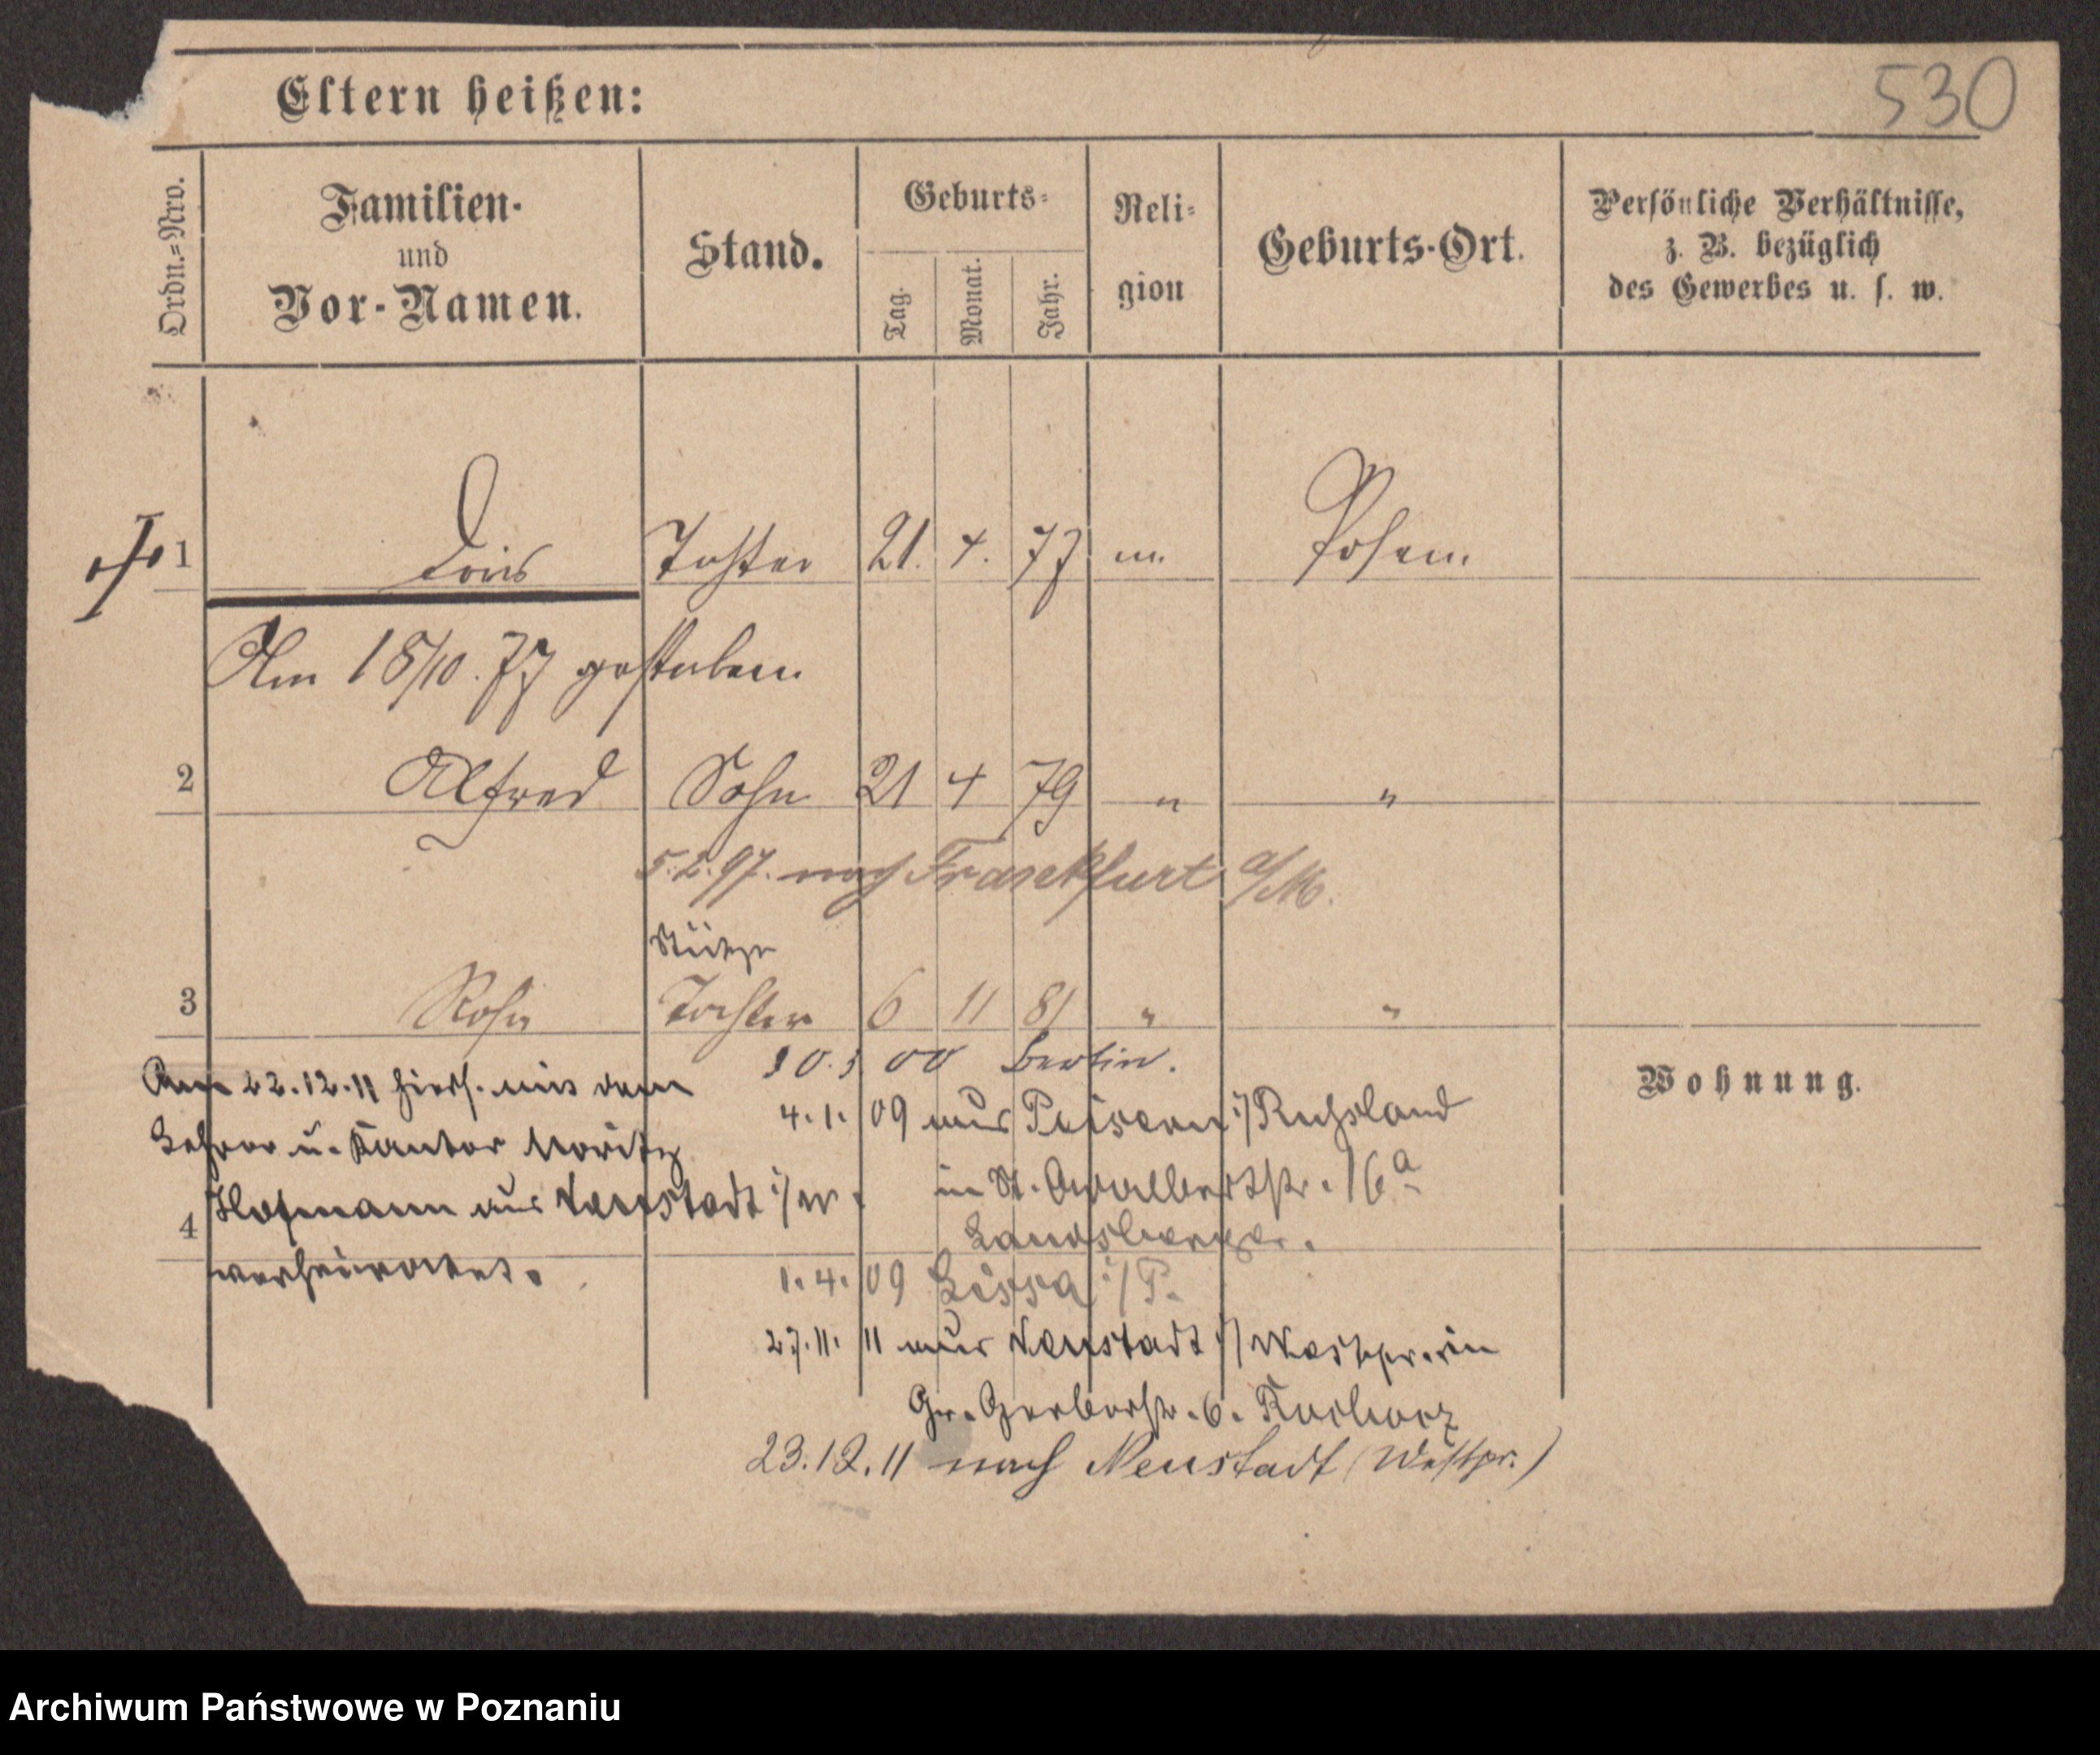 530
Eltern heißen:
Ordn.=Nro.
Familien- und Vor-Namen.
Stand.
Geburts-
Tag.
Monat.
Jahr.
Reli-
gion
Geburts-Ort.
Persönliche Verhältnisse,
z. B. bezüglich
des Gewerbes u. s. w.
1 Tochter 21. 4. 77 m. Posen
Am 18/10. 77 gestorben
2 Alfred Sohn 21 4 79 " "
5.2.97. nach Frankfurt a/M.
Stütze
3 Rosa Tochter 6 11 81 " "
00 Berlin.
Wohnung.
Am 22.12.11 hiers. mit dem
4.1.09 aus Peisern i/Russland
Lehrer u. Kantor Moritz
in St. Adalbertstr. 16a
Hofmann aus Neustadt i/W.
Landsberger.
4
verheiratet.
1.4.09 Lissa i/P.
27.11.11 aus Neustadt i/Westpr. in
Gr. Gerberstr. 6.
23.12.11 nach Neustadt (Westpr.)
Archiwum Państwowe w Poznaniu